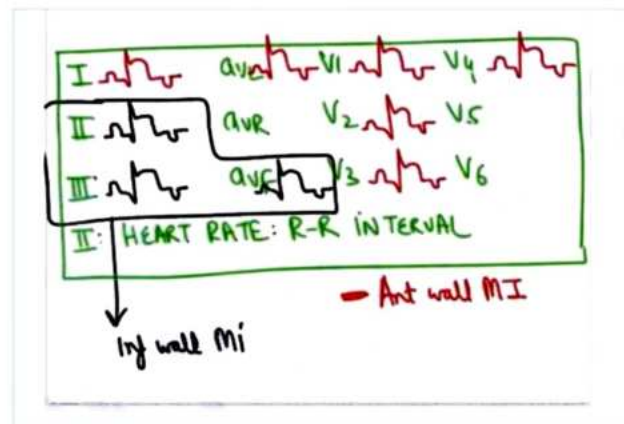 I aVL V1 V4
II aVR V2 V5
III aVF V3 V6
II: HEART RATE: R-R INTERVAL
- Ant wall MI
Inf wall Mi